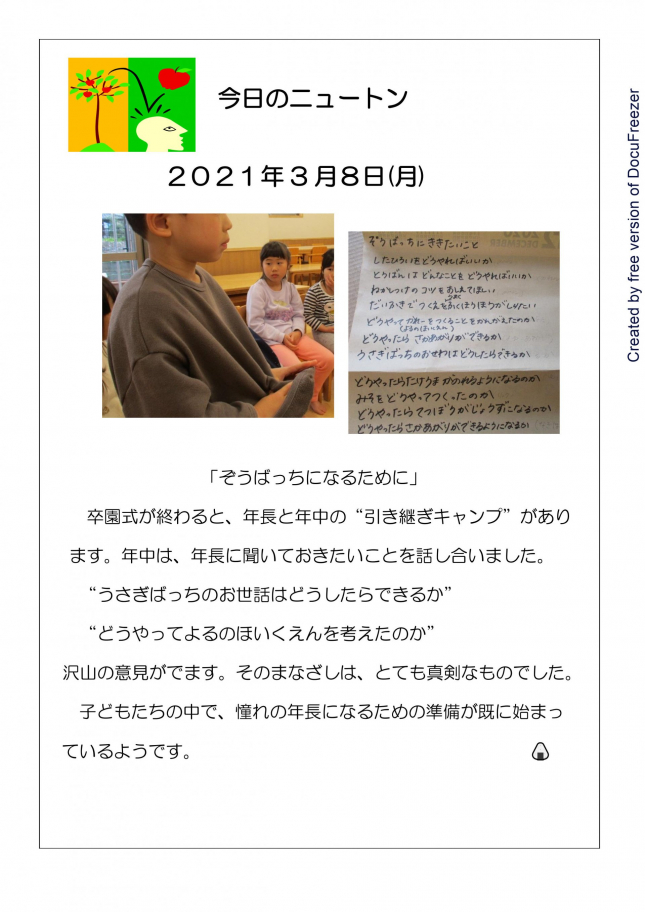 今日のニュートン
２０２１年３月８日(月)
ぞうばっちにききたいこと
したひろいをどうやればいいか
とうばんはどんなことをどうやればいいか
ねかしつけのコツをおしえてほしい
だいふきでつくえをふくほうほうがしりたい
どうやってカレーをつくることをかんがえたのか
(よるのほいくえん)
どうやったらさかあがりができるか
うさぎばっちのおせわはどうしたらできるか
どうやったらたけうまがのれるようになるのか
みそをどうやってつくったのか
どうやったらてつぼうがじょうずになるのか
どうやったらさかあがりができるようになるか
「ぞうばっちになるために」
卒園式が終わると、年長と年中の“引き継ぎキャンプ”があり
ます。年中は、年長に聞いておきたいことを話し合いました。
“うさぎばっちのお世話はどうしたらできるか”
“どうやってよるのほいくえんを考えたのか”
沢山の意見がでます。そのまなざしは、とても真剣なものでした。
子どもたちの中で、憧れの年長になるための準備が既に始まっ
ているようです。
Created by free version of DocuFreezer